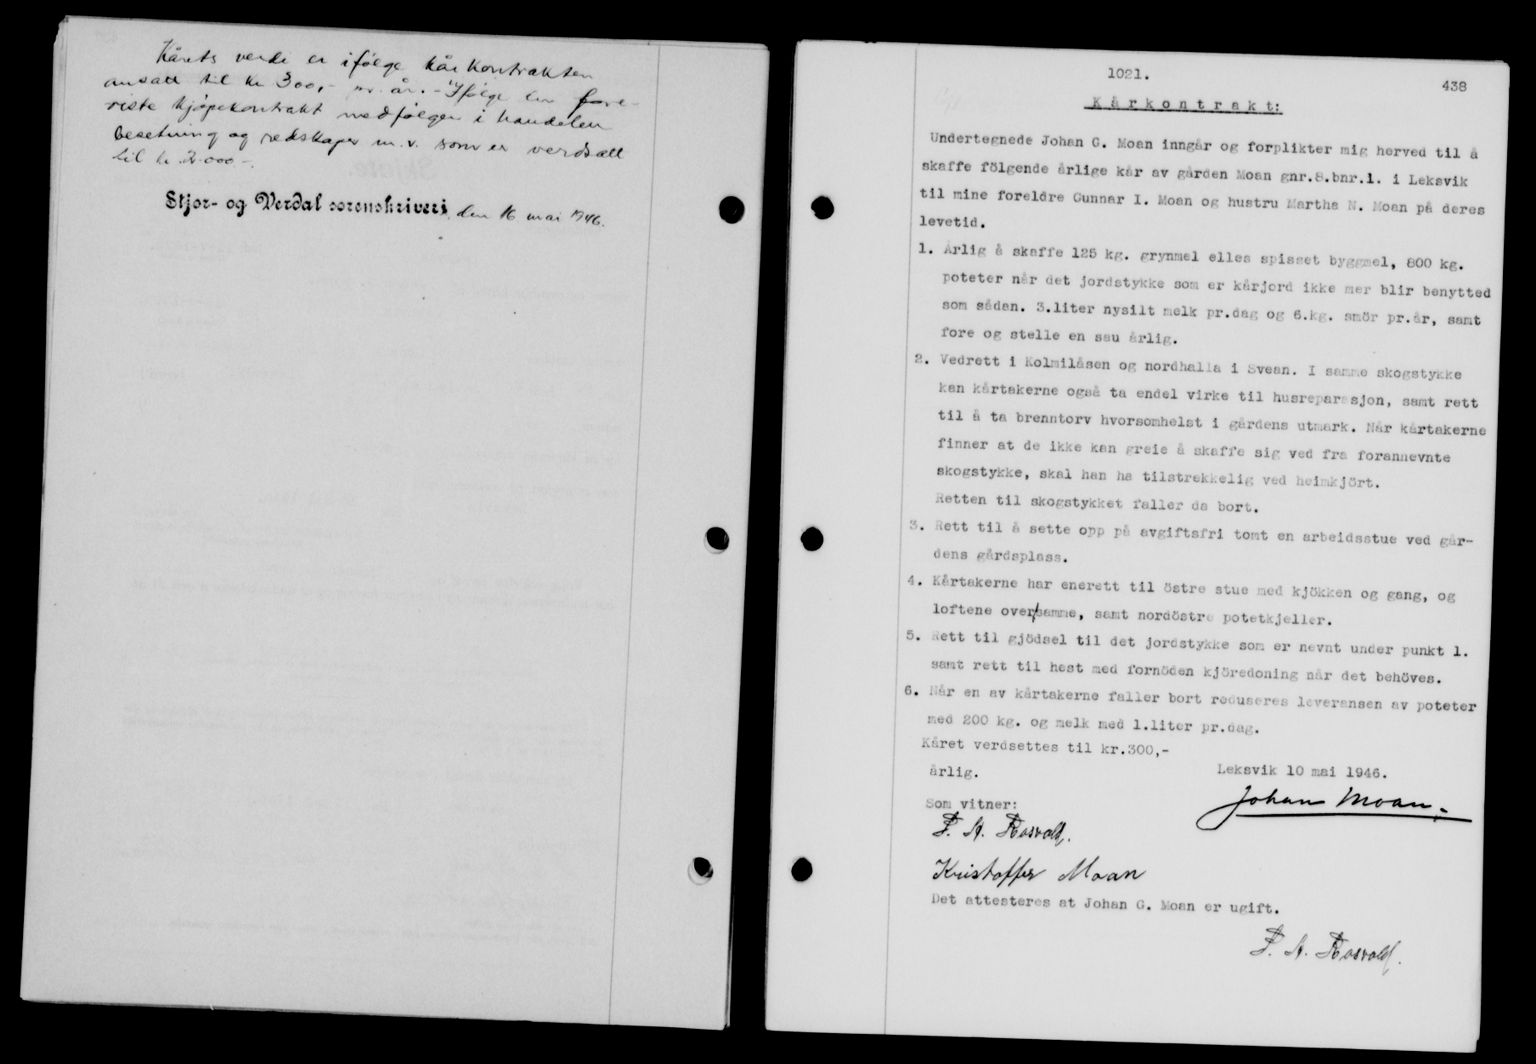 Kårets verdi er ifølge kårkontrakten
ansatt til kr 300,- pr. år. - Ifølge den fore-
viste kjøpekontrakt medfølger i handelen
besetning og redskaper m. v. som er verdsatt
til kr. 2.000 -.
Stjør- og Verdal sorenskriveri, den 16 mai 1946.
1021.
438
Kårkontrakt:
Undertegnede Johan G. Moan inngår og forplikter mig herved til å
skaffe fölgende årlige kår av gården Moan gnr.8.bnr.1. i Leksvik
til mine foreldre Gunnar I. Moan og hustru Martha N. Moan på deres
levetid.
1. Årlig å skaffe 125 kg. grynmel elles spisset byggmel, 800 kg.
poteter når det jordstykke som er kårjord ikke mer blir benytted
som sådan. 3.liter nysilt melk pr.dag og 6.kg. smör pr.år, samt
fore og stelle en sau årlig.
2. Vedrett i Kolmilåsen og nordhalla i Svean. I samme skogstykke
kan kårtakerne også ta endel virke til husreparasjon, samt rett
til å ta brenntorv hvorsomhelst i gårdens utmark. Når kårtakerne
finner at de ikke kan greie å skaffe sig ved fra forannevnte
skogstykke, skal han ha tilstrekkelig ved heimkjört.
Retten til skogstykket faller da bort.
3. Rett til å sette opp på avgiftsfri tomt en arbeidsstue ved går-
dens gårdsplass.
4. Kårtakerne har enerett til östre stue med kjökken og gang, og
loftene over/samme, samt nordöstre potetkjeller.
5. Rett til gjödsel til det jordstykke som er nevnt under punkt 1.
samt rett til hest med fornöden kjöredoning når det behöves.
6. Når en av kårtakerne faller bort reduseres leveransen av poteter
med 200 kg. og melk med 1.liter pr.dag.
Kåret verdsettes til kr.300,-
årlig.
Leksvik 10 mai 1946.
Johan Moan.
Som vitner:
P. A. Rosvold.
Kristoffer Moan
Det attesteres at Johan G. Moan er ugift.
P. A. Rosvold.